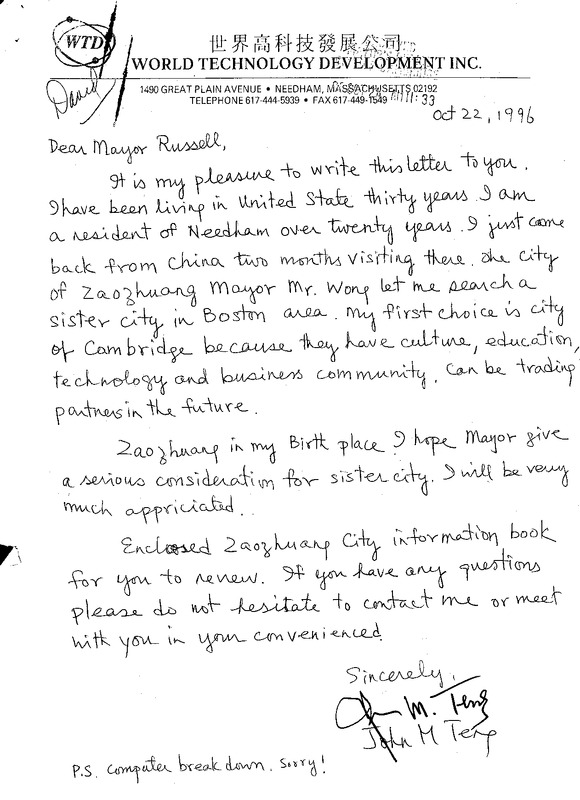 WTD
世界高科技發展公司
WORLD TECHNOLOGY DEVELOPMENT INC.
David
1490 GREAT PLAIN AVENUE • NEEDHAM, MASSACHUSETTS 02192
TELEPHONE 617-444-5939 • FAX 617-449-1549
11:33
Oct 22, 1996
Dear Mayor Russell,
It is my pleasure to write this letter to you.
I have been living in United State thirty years. I am
a resident of Needham over twenty years. I just came
back from China two months visiting there. The city
of Zaozhuang Mayor Mr. Wong let me search a
sister city in Boston area. My first choice is city
of Cambridge because they have culture, education,
technology and business community. Can be trading
partners in the future.
Zaozhuang in my Birth place I hope Mayor give
a serious consideration for sister city. I will be very
much appriciated.
Enclosed Zaozhuang City information book
for you to review. If you have any questions
please do not hesitate to contact me or meet
with you in your convenienced.
Sincerely,
John M. Teng
John M Teng
P.S. Computer break down. Sorry!